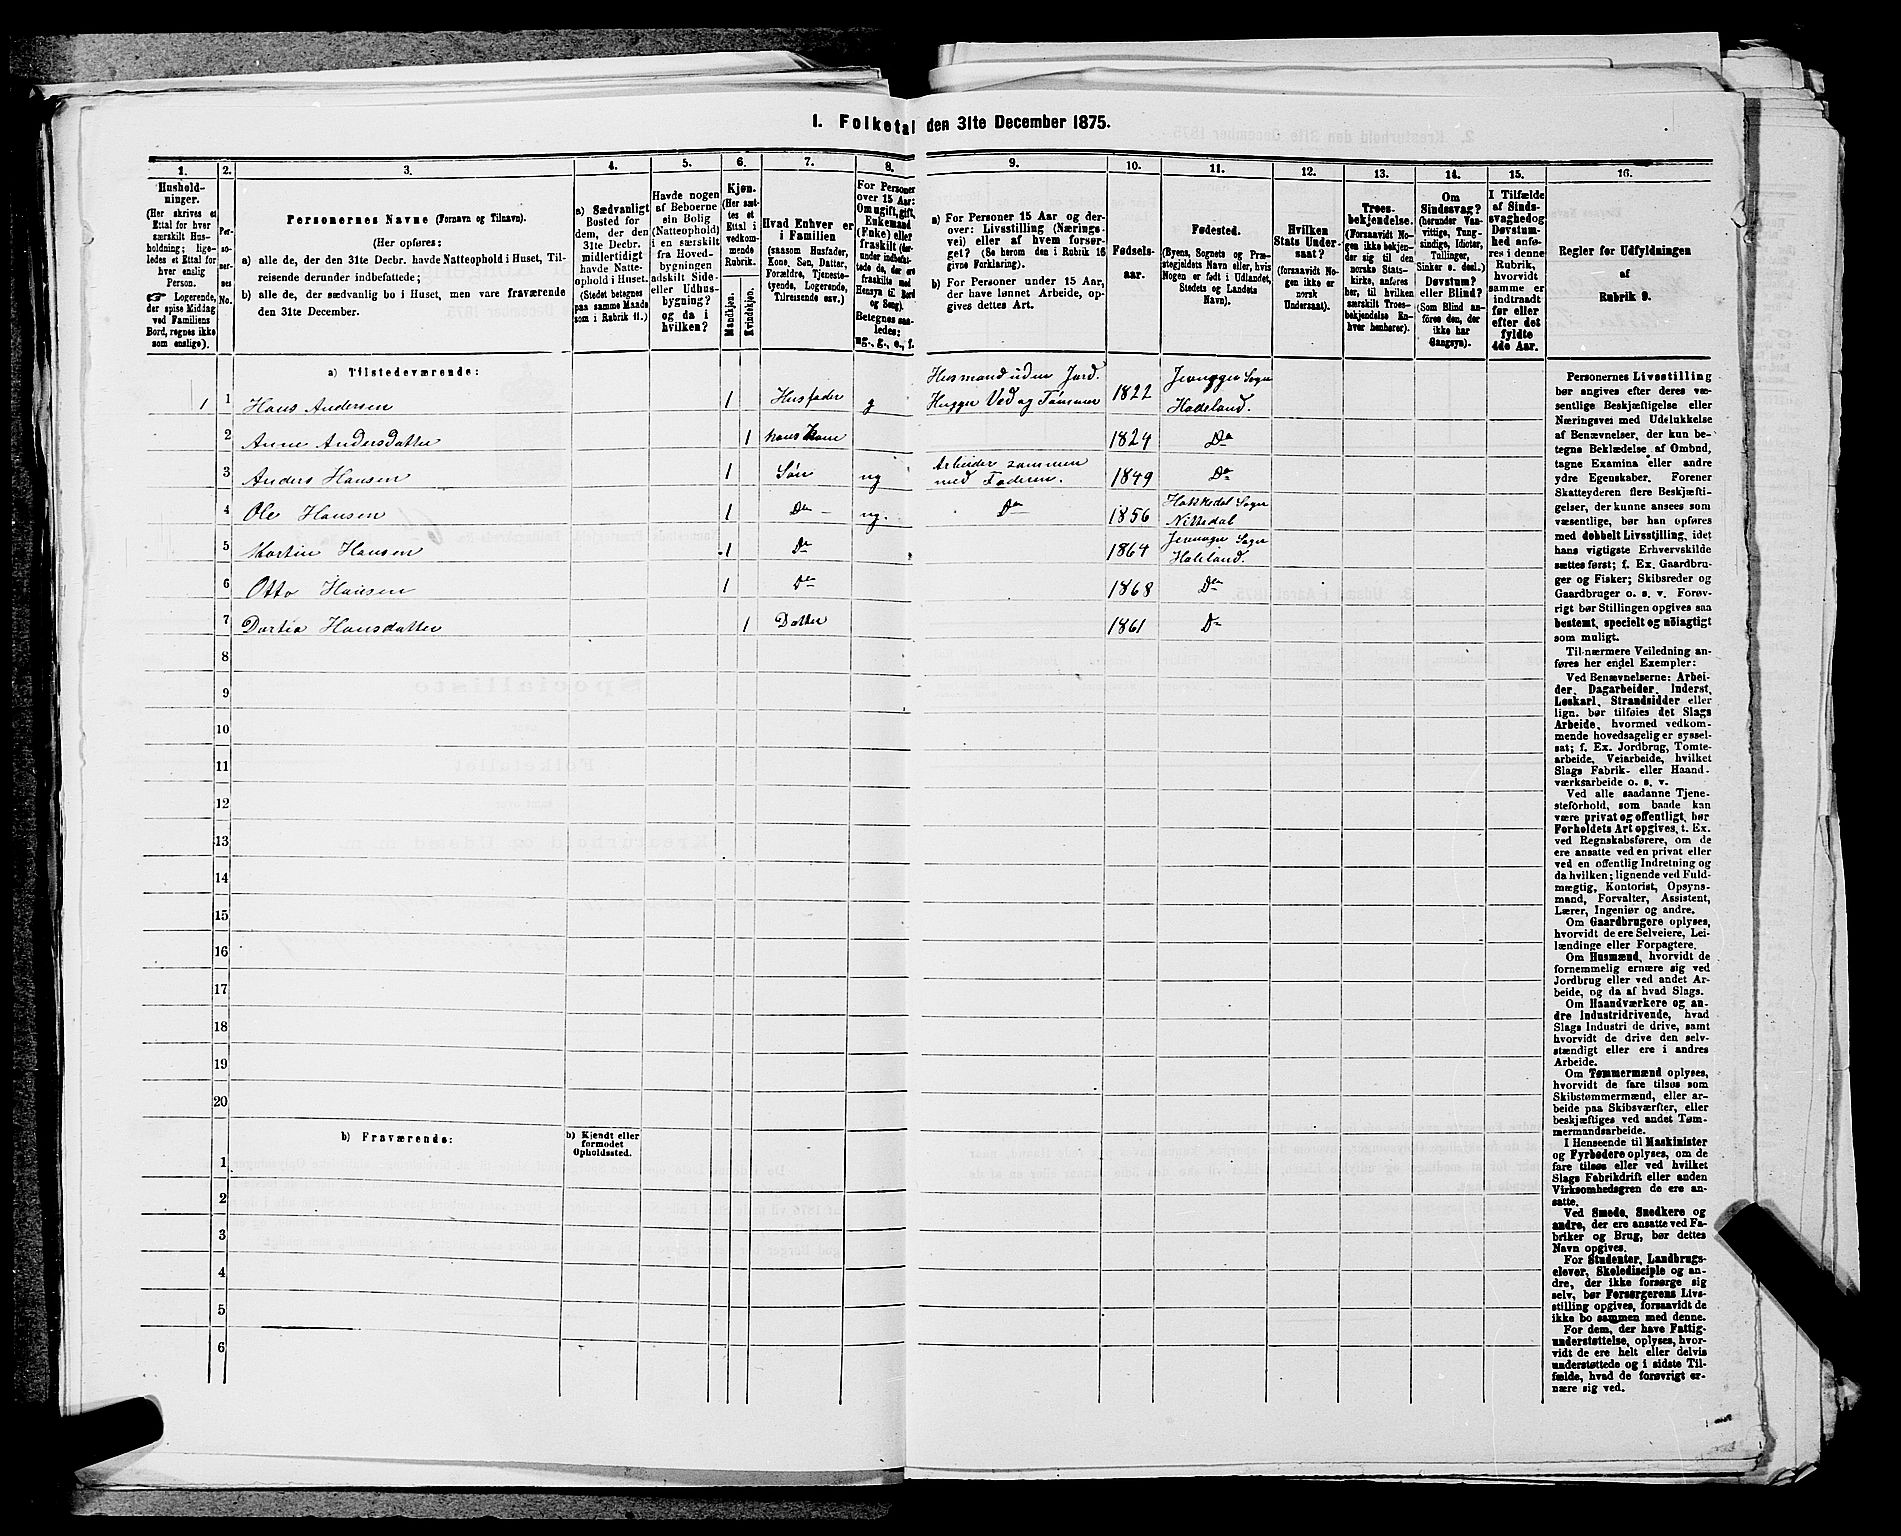 1. Folketal den 31te December 1875.
1.
Hushold-
ninger.
(Her skrives et
Ettal for hver
særskilt Hus-
holdning; lige-
ledes et Ettal for
hver enslig
Person.
☞ Logerende,
der spise Middag
ved Familiens
Bord, regnes ikke
som enslige).
2.
Per-
so-
ner-
nes
No.
3.
Personernes Navne (Fornavn og Tilnavn).
(Her opføres:
a) alle de, der den 31te Decbr. havde Natteophold i Huset, Til-
reisende derunder indbefattede;
b) alle de, der sædvanlig bo i Huset, men vare fraværende
den 31te December.
4.
a) Sædvanligt
Bosted for
dem, der den
31te Decbr.
midlertidigt
havde Natte-
ophold i Huset.
(Stedet betegnes
paa samme Maade
som i Rubrik 11.)
5.
Havde nogen
af Beboerne
sin Bolig
(Natteophold)
i en særskilt
fra Hoved-
bygningen
adskilt Side-
eller Udhus-
bygning?
og da i
hvilken?
6.
Kjøn.
(Her sæt-
tes et
Ettal i
vedkom-
mende
Rubrik.
Mandkjøn.
Kvindekjøn.
7.
Hvad Enhver er
i Familien
(saasom Husfader,
Kone, Søn, Datter,
Forældre, Tjeneste-
tyende, Logerende,
Tilreisende osv.)
8.
For Personer
over 15 Aar:
Om ugift, gift,
Enkemand
(Enke) eller
fraskilt (der-
under indbefat-
tede de, der ere
fraskilte med
Hensyn til Bord
og Seng).
Betegnes saa-
ledes:
ug., g., e., f.
9.
a) For Personer 15 Aar og der-
over: Livsstilling (Nærings-
vei) eller af hvem forsør-
get? (Se herom den i Rubrik 16
givne Forklaring).
b) For Personer under 15 Aar,
der have lønnet Arbeide, op-
gives dettes Art.
10.
Fødsels-
aar.
11.
Fødested.
(Byens, Sognets og Præ-
stegjeldets Navn eller, hvis
Nogen er født i Udlandet,
Stedets og Landets
Navn).
12.
Hvilken
Stats Under-
saat?
(forsaavidt No-
gen ikke er
norsk
Undersaat).
13.
Troes-
bekjendelse.
(Forsaavidt No-
gen ikke bekjen-
der sig til den
norske Stats-
kirke, anføres
her, til hvilken
særskilt Troes-
bekjendelse En-
hver henhører).
14.
Om
Sindssvag?
(herunder Van-
vittige, Tung-
sindige, Idioter,
Tullinger,
Sinker o. desl.)
Døvstum?
eller Blind?
(Som Blind an-
føres den, der
ikke har
Gangsyn).
15.
I Tilfælde
af Sinds-
svaghed og
Døvstum-
hed anfø-
res i denne
Rubrik,
hvorvidt
samme er
indtraadt
før eller
efter det
fyldte
4de Aar.
16.
Regler for Udfyldningen
af
Rubrik 9.
a) Tilstedeværende:
1 1 Hans Andersen 1 Husfader g Husmand uden Jord. Hugger Ved og Tømmer 1822 Jevnager Sogn Hadeland.
2 Anne Andersdatter 1 hans Kone 1824 Do
3 Anders Hansen 1 Søn ug Arbeider sammen med Faderen. 1849 Do
4 Ole Hansen 1 Do ug. Do 1856 Hakkedal Sogn Nittedal
5 Martin Hansen 1 Do 1864 Jevnager Sogn Hadeland.
6 Otto Hansen 1 Do 1868 Do
7 Dortea Hansdatter 1 Datter 1861 Do
8
9
10
11
12
13
14
15
16
17
18
19
20
b) Fraværende:
b) Kjendt eller
formodet
Opholdssted.
1
2
3
4
5
6
Personernes Livsstilling
bør angives efter deres væ-
sentlige Beskjæftigelse eller
Næringsvei med Udelukkelse
af Benævnelser, der kun be-
tegne Beklædelse af Ombud,
tagne Examina eller andre
ydre Egenskaber. Forener
Skatteyderen flere Beskjæfti-
gelser, der kunne ansees som
væsentlige, bør han opføres
med dobbelt Livsstilling, idet
hans vigtigste Erhvervskilde
sættes først; f. Ex. Gaardbru-
ger og Fisker; Skibsreder og
Gaardbruger o. s. v. Forøv-
rigt bør Stillingen opgives saa
bestemt, specielt og nøiagtigt
som muligt.
Til nærmere Veiledning an-
føres her endel Exempler:
Ved Benævnelserne: Arbei-
der, Dagarbeider, Inderst,
Løskarl, Strandsidder eller
lign. bør tilføies det Slags
Arbeide, hvormed vedkom-
mende hovedsagelig er syssel-
sat; f. Ex. Jordbrug, Tomte-
arbeide, Veiarbeide, hvilket
Slags Fabrik- eller Haand-
værksarbeide o. s. v.
Ved alle saadanne Tjene-
steforhold, som baade kan
være privat og offentligt, bør
Forholdets Art opgives, t. Ex.
ved Regnskabsførere, om de
ere ansatte ved en privat eller
ved en offentlig Indretning og
da hvilken; lignende ved Fuld-
mægtig, Kontorist, Opsyns-
mand, Forvalter, Assistent,
Lærer, Ingeniør og andre.
Om Gaardbrugere oplyses,
hvorvidt de ere Selveiere, Lei-
lændinge eller Forpagtere.
Om Husmænd, hvorvidt de
fornemmelig ernære sig ved
Jordbrug eller ved andet Ar-
beide, og da af hvad Slags.
Om Haandværkere og an-
dre Industridrivende, hvad
Slags Industri de drive, samt
hvorvidt de drive den selv-
stændigt eller ere i andres
Arbeide.
Om Tømmermænd oplyses,
hvorvidt de fare tilsøs som
Skibstømmermænd, eller ar-
beide paa Skibsværfter, eller
beskjæftiges ved andet Tøm-
mermandsarbeide.
I Henseende til Maskinister
og Fyrbødere oplyses, om de
fare tilsøs eller ved hvilket
Slags Fabrikdrift eller anden
Virksomhedsgren de ere an-
satte.
Ved Smede, Snedkere og
andre, der ere ansatte ved Fa-
briker og Brug, bør dettes
Navn opgives.
For Studenter, Landbrugs-
elever, Skoledisciple og an-
dre, der ikke forsørge sig
selv, bør Forsørgerens Livs-
stilling opgives, forsaavidt de
ikke bo sammen med denne.
For dem, der have Fattig-
understøttelse, oplyses, hvor-
vidt de ere helt eller delvis
understøttede og i sidste Til-
fælde, hvad de forøvrigt er-
nære sig ved.